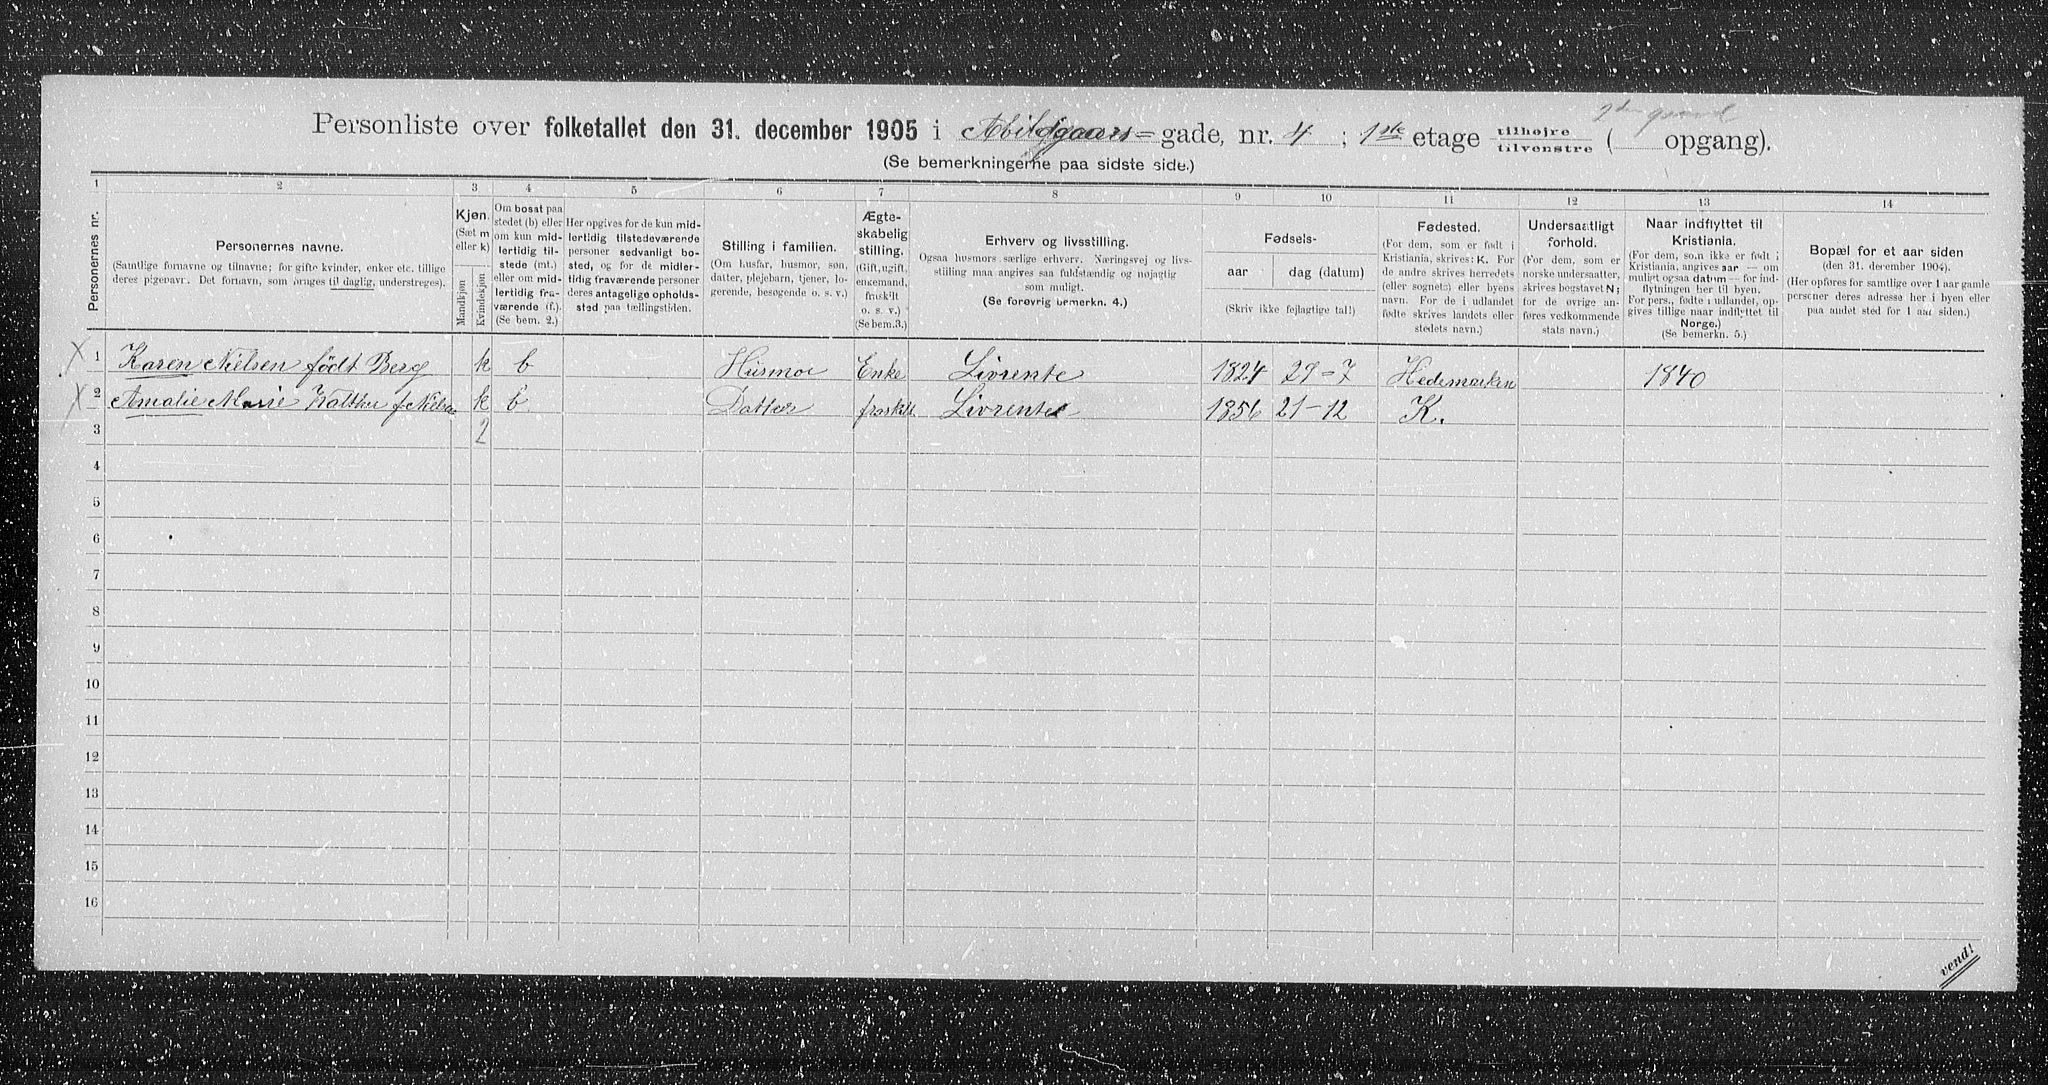 2den gaard
Personliste over folketallet den 31. december 1905 i Abildgaars=gade, nr. 4 ; 1ste etage tilhøjre tilvenstre ( opgang).
(Se bemerkningerne paa sidste side.)
1 2 3 4 5 6 7 8 9 10 11 12 13 14
Personernes nr.
Personernes navne.
(Samtlige fornavne og tilnavne; for gifte kvinder, enker etc. tillige
deres pigenavr. Det fornavn, som bruges til daglig, understreges).
Kjøn.
(Sæt m
eller k)
Mandkjøn
Kvindekjøn
Om bosat paa
stedet (b) eller
om kun mid-
lertidig til-
stede (mt.)
eller om mid-
lertidig fra-
værende (f.).
(Se bem. 2.)
Her opgives for de kun mid-
lertidig tilstedeværende
personer sedvanlig bo-
sted, og for de midler-
tidig fraværende personer
deres antagelige opholds-
sted paa tællingstiden.
Stilling i familien.
(Om husfar, husmor, søn,
datter, plejebarn, tjener, lo-
gerende, besøgende o. s. v.)
Ægte-
skabelig
stilling.
(Gift, ugift,
enkemand,
fraskilt
o. s. v.)
(Se bem.3.)
Erhverv og livsstilling.
Ogsaa husmors særlige erhverv. Næringsvej og livs-
stilling maa angives saa fuldstændig og nøjagtig
som muligt.
(Se forøvrig bemerkn. 4.)
Fødsels-
aar
dag (datum)
(Skriv ikke fejlagtige tal!)
Fødested.
(For dem, som er født i
Kristiania, skrives: K. For
de andre skrives herredets
(eller sognets) eller byens
navn. For de i udlandet
fødte skrives landets eller
stedets navn.)
Undersaatligt
forhold.
(For dem, som er
norske undersaatter,
skrives bogstavet N;
for de øvrige an-
føres vedkommende
stats navn.)
Naar indflyttet til
Kristiania.
(For dem, som ikke er født i
Kristiania, angives aar — om
muligt ogsaa datum — for ind-
flytningen her til byen.
For pers., fødte i udlandet, op-
gives tillige naar indflyttet til
Norge.)
(Se bemerkn. 5.)
Bopæl for et aar siden
(den 31. december 1904).
(Her opføres for samtlige over 1 aar gamle
personer deres adresse her i byen eller
paa andet sted for 1 aar siden.)
X 1 Karen Nielsen født Berg k b Husmor Enke Livrente 1824 29-7 Hedemarken 1840
X 2 Amalie Marie f. Nielsen k b Datter fraskilt Livrente 1856 21-12 K.
3 2
4
5
6
7
8
9
10
11
12
13
14
15
16
vend!